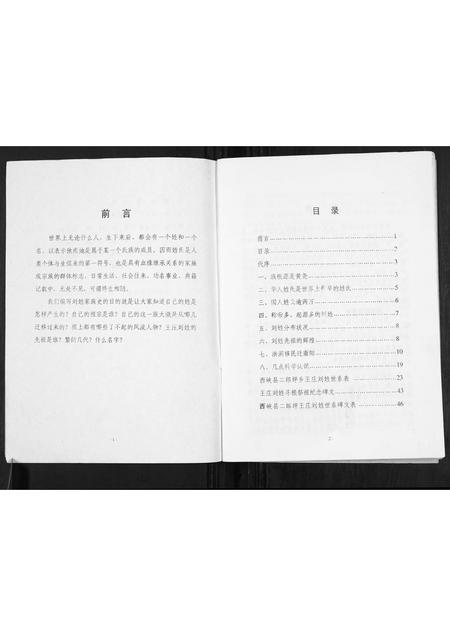 前言
世界上无论什么人，生下来后，都会有一个姓和一个
名，以表示他或她是属于某一个氏族的成员。因而姓氏是人
类个体与生俱来的第一符号，也是具有血缘继承关系的家族
或宗族的群体标志。日常生活、社会往来、功名事业、典籍
记载中，无处不见，可谓终生相随。
我们编写刘姓家族史的目的就是让大家知道自己的姓是
怎样产生的？自己的祖宗是谁？自己的这一族大致是从哪儿
迁移过来的？祖上都有哪些了不起的风流人物？王庄刘姓的
先祖是谁？繁衍几代？什么名字？
1
目录
前言……1
目录……2
代序……3
一、族根源是黄尧……3
二、华人姓氏是世界上最早的姓氏……5
三、国人姓氏逾两万……6
四、称谓多、起源多的刘姓……7
五、刘姓分布状况……7
六、刘姓先祖的辉煌……8
七、洪洞移民迁南阳……10
八、几点科学认识……19
西峡县二郎坪乡王庄刘姓世系表……23
王庄刘姓寻根祭祖纪念碑文……43
西峡县二郎坪王庄刘姓世系碑文表……46
2